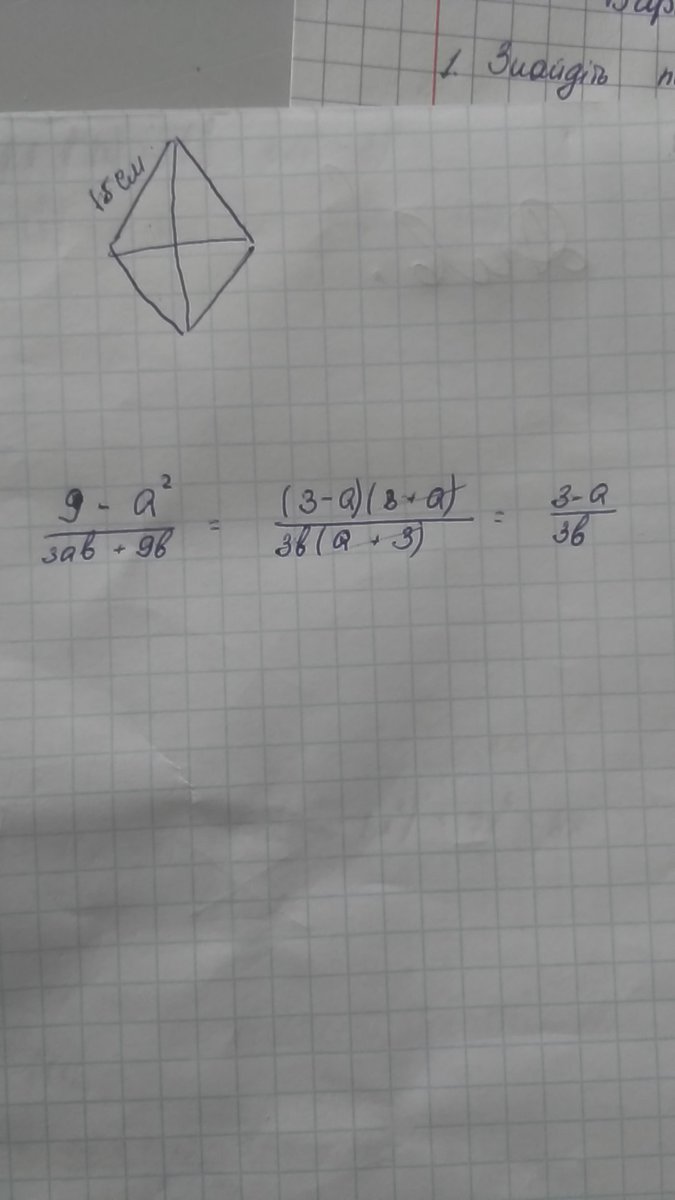 1. Знайдіть
15 см
9 - a² / 3ab + 9b = (3-a)(3+a) / 3b(a + 3) = 3-a / 3b